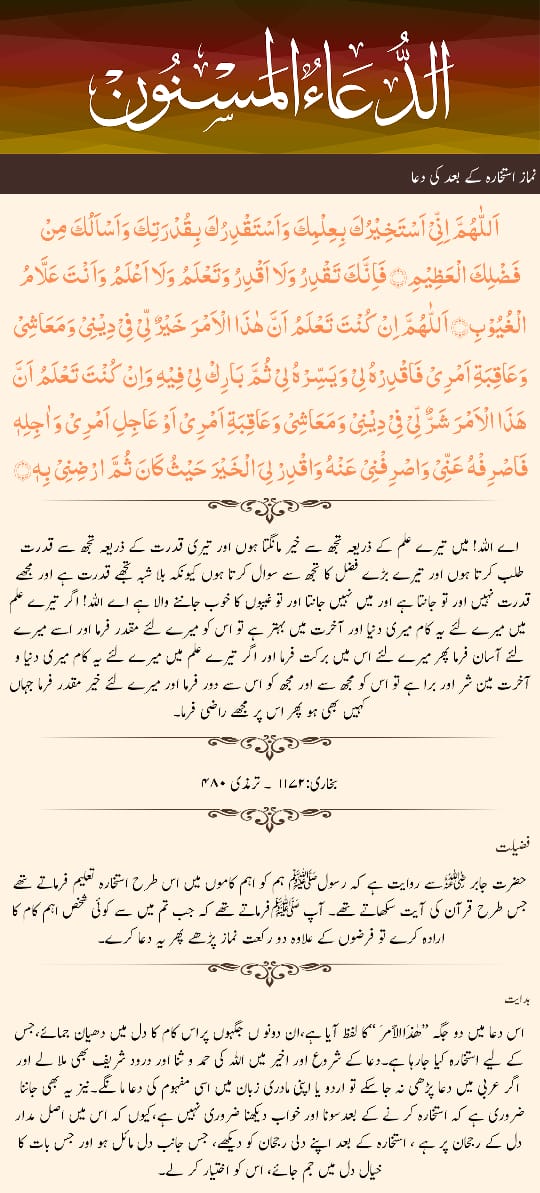 الدُّعَاءُ الْمَسْنُون
نماز استخارہ کے بعد کی دعا
اَللّٰهُمَّ اِنِّیْ اَسْتَخِیْرُكَ بِعِلْمِكَ وَاَسْتَقْدِرُكَ بِقُدْرَتِكَ وَاَسْاَلُكَ مِنْ
فَضْلِكَ الْعَظِیْمِ۝ فَاِنَّكَ تَقْدِرُ وَلَا اَقْدِرُ وَتَعْلَمُ وَلَا اَعْلَمُ وَاَنْتَ عَلَّامُ
الْغُیُوْبِ۝ اَللّٰهُمَّ اِنْ كُنْتَ تَعْلَمُ اَنَّ هٰذَا الْاَمْرَ خَیْرٌ لِّیْ فِیْ دِیْنِیْ وَمَعَاشِیْ
وَعَاقِبَةِ اَمْرِیْ فَاقْدِرْهُ لِیْ وَیَسِّرْهُ لِیْ ثُمَّ بَارِكْ لِیْ فِیْهِ وَاِنْ كُنْتَ تَعْلَمُ اَنَّ
هَذَا الْاَمْرَ شَرٌّ لِّیْ فِیْ دِیْنِیْ وَمَعَاشِیْ وَعَاقِبَةِ اَمْرِیْ اَوْ عَاجِلِ اَمْرِیْ وَاٰجِلِهٖ
فَاصْرِفْهُ عَنِّیْ وَاصْرِفْنِیْ عَنْهُ وَاقْدِرْ لِیَ الْخَیْرَ حَیْثُ كَانَ ثُمَّ ارْضِنِیْ بِهٖ۝
اے اللہ! میں تیرے علم کے ذریعہ تجھ سے خیر مانگتا ہوں اور تیری قدرت کے ذریعہ تجھ سے قدرت
طلب کرتا ہوں اور تیرے بڑے فضل کا تجھ سے سوال کرتا ہوں کیونکہ بلا شبہ تجھے قدرت ہے اور مجھے
قدرت نہیں اور تو جانتا ہے اور میں نہیں جانتا اور تو غیبوں کا خوب جاننے والا ہے اے اللہ! اگر تیرے علم
میں میرے لئے یہ کام میری دنیا اور آخرت میں بہتر ہے تو اس کو میرے لئے مقدر فرما اور اسے میرے
لئے آسان فرما پھر میرے لئے اس میں برکت فرما اور اگر تیرے علم میں میرے لئے یہ کام میری دنیا و
آخرت مین شر اور برا ہے تو اس کو مجھ سے اور مجھ کو اس سے دور فرما اور میرے لئے خیر مقدر فرما جہاں
کہیں بھی ہو پھر اس پر مجھے راضی فرما۔
بخاری:۱۱۷۲ ۔ ترمذی ۴۸۰
فضیلت
حضرت جابر ﷜ سے روایت ہے کہ رسولﷺ ہم کو اہم کاموں میں اس طرح استخارہ تعلیم فرماتے تھے
جس طرح قرآن کی آیت سکھاتے تھے۔ آپ ﷺ فرماتے تھے کہ جب تم میں سے کوئی شخص اہم کام کا
ارادہ کرے تو فرضوں کے علاوہ دو رکعت نماز پڑھے پھر یہ دعا کرے۔
ہدایت
اس دعا میں دو جگہ ”ھٰذَاالأمرَ“ کا لفظ آیا ہے،ان دونو ں جگہوں پراس کام کا دل میں دھیان جمائے،جس
کے لیے استخارہ کیا جارہا ہے۔دعا کے شروع اور اخیر میں اللہ کی حمد و ثنا اور درود شریف بھی ملا لے اور
اگر عربی میں دعا پڑھی نہ جاسکے تو اردو یا اپنی مادری زبان میں اسی مفہوم کی دعا مانگے۔نیز یہ بھی جاننا
ضروری ہے کہ استخارہ کرنے کے بعدسونا اور خواب دیکھنا ضروری نہیں ہے،کیوں کہ اس میں اصل مدار
دل کے رجحان پر ہے ، استخارہ کے بعد اپنے دلی رجحان کو دیکھے، جس جانب دل مائل ہو اور جس بات کا
خیال دل میں جم جائے، اس کو اختیار کر لے۔